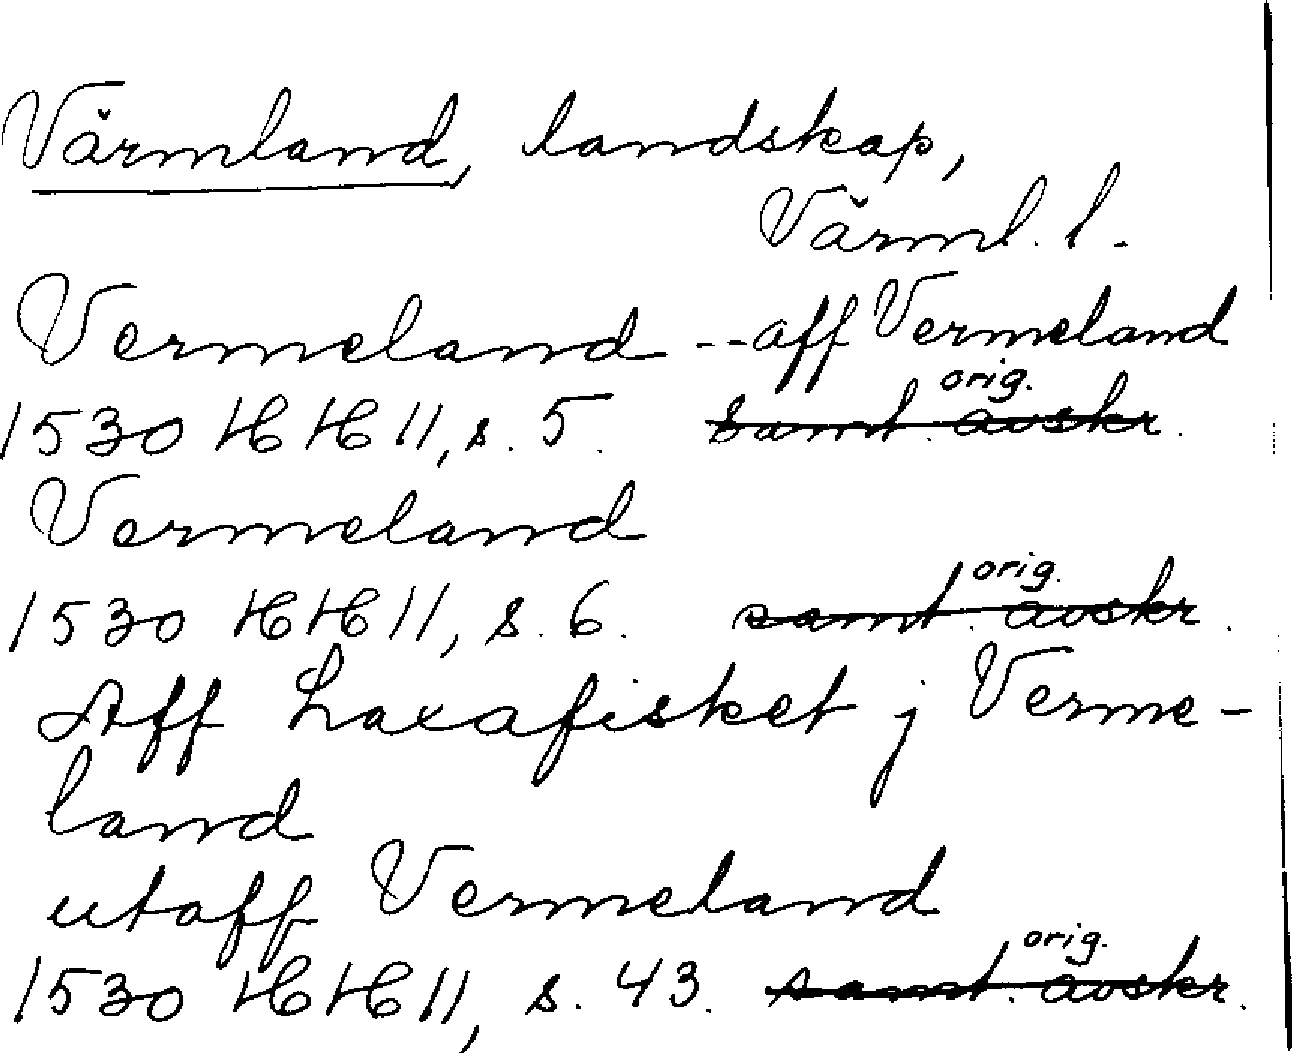 Värmland, landskap,
Värml. l.
Vermeland -- aff Vermeland
orig.
1530 HH 11, s. 5. samt. avskr.
Vermeland
orig.
1530 HH 11, s. 6. samt. avskr.
Aff Laxafisket j Verme-
land
utaff Vermeland
orig.
1530 HH 11, s. 43. samt. avskr.